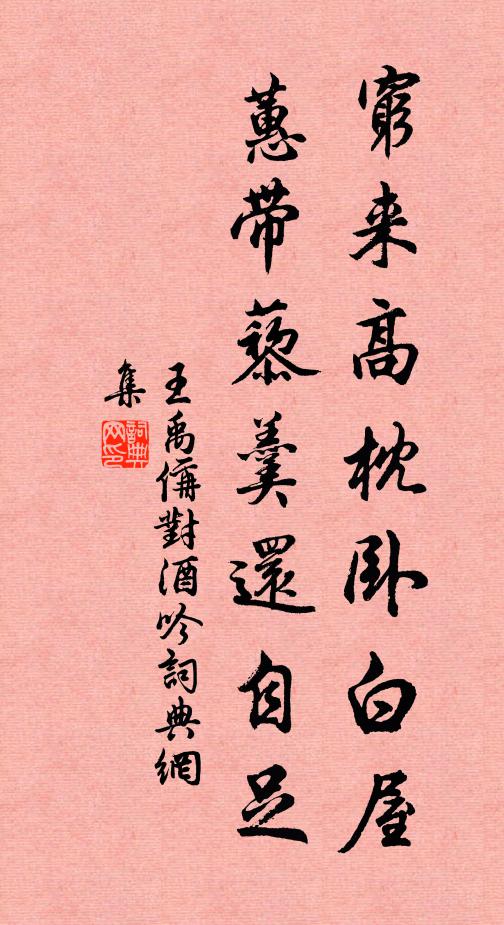 窮来高枕卧白屋
蕙带藜羹還自足
王禹偁對酒吟詞典網
集
詞典網印